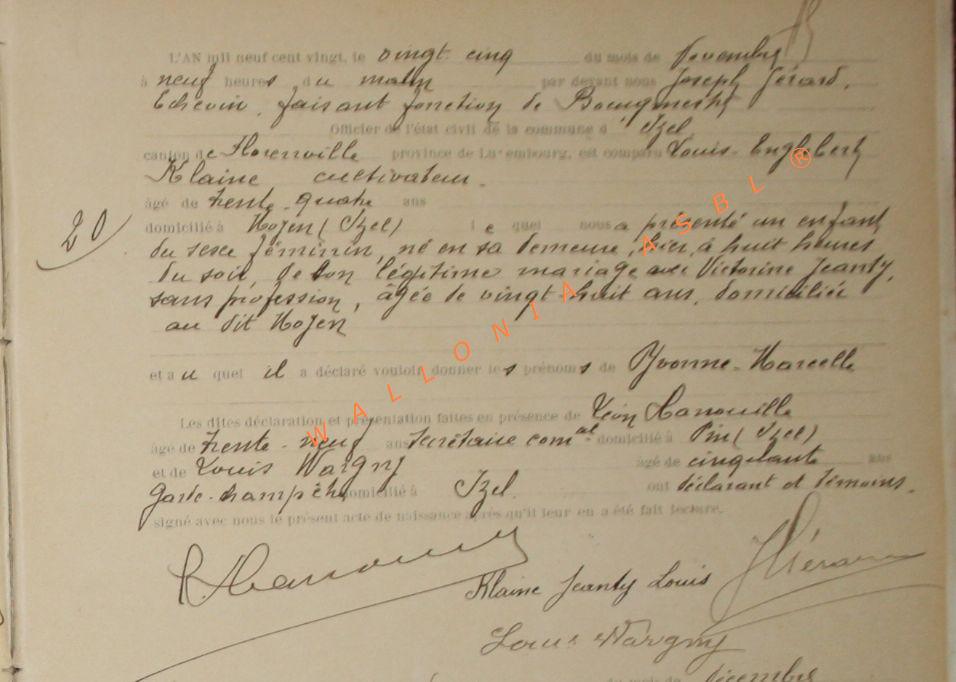 L'AN mil neuf cent vingt, le vingt cinq du mois de Novembre
à neuf heures du matin par devant nous Joseph Gérard,
Echevin, faisant fonction de Bourgmestre
Officier de l'état civil de la commune d'Izel
canton de Florenville province de Luxembourg, est comparu Louis-Englebert
Klaine cultivateur.
âgé de trente-quatre ans
20
domicilié à Moyen (Izel) le quel nous a présenté un enfant
du sexe féminin, né en sa demeure, hier, à huit heures
du soir, de son légitime mariage avec Victorine Jeanty,
sans profession, âgée de vingt-huit ans, domiciliée
au dit Moyen
et au quel il a déclaré vouloir donner les prénoms de Yvonne-Marcelle
Les dites déclaration et présentation faites en présence de Léon Hanouille
âgé de trente-neuf ans secrétaire com.al domicilié à Pin (Izel)
et de Louis Wargny âgé de cinquante ans
Garde-champêtre domicilié à Izel. ont déclarant et témoins.
signé avec nous le présent acte de naissance après qu'il leur en a été fait lecture.
Klaine Jeanty Louis
Louis Wargny
du mois de Décembre
WALLONIA ASBL ®